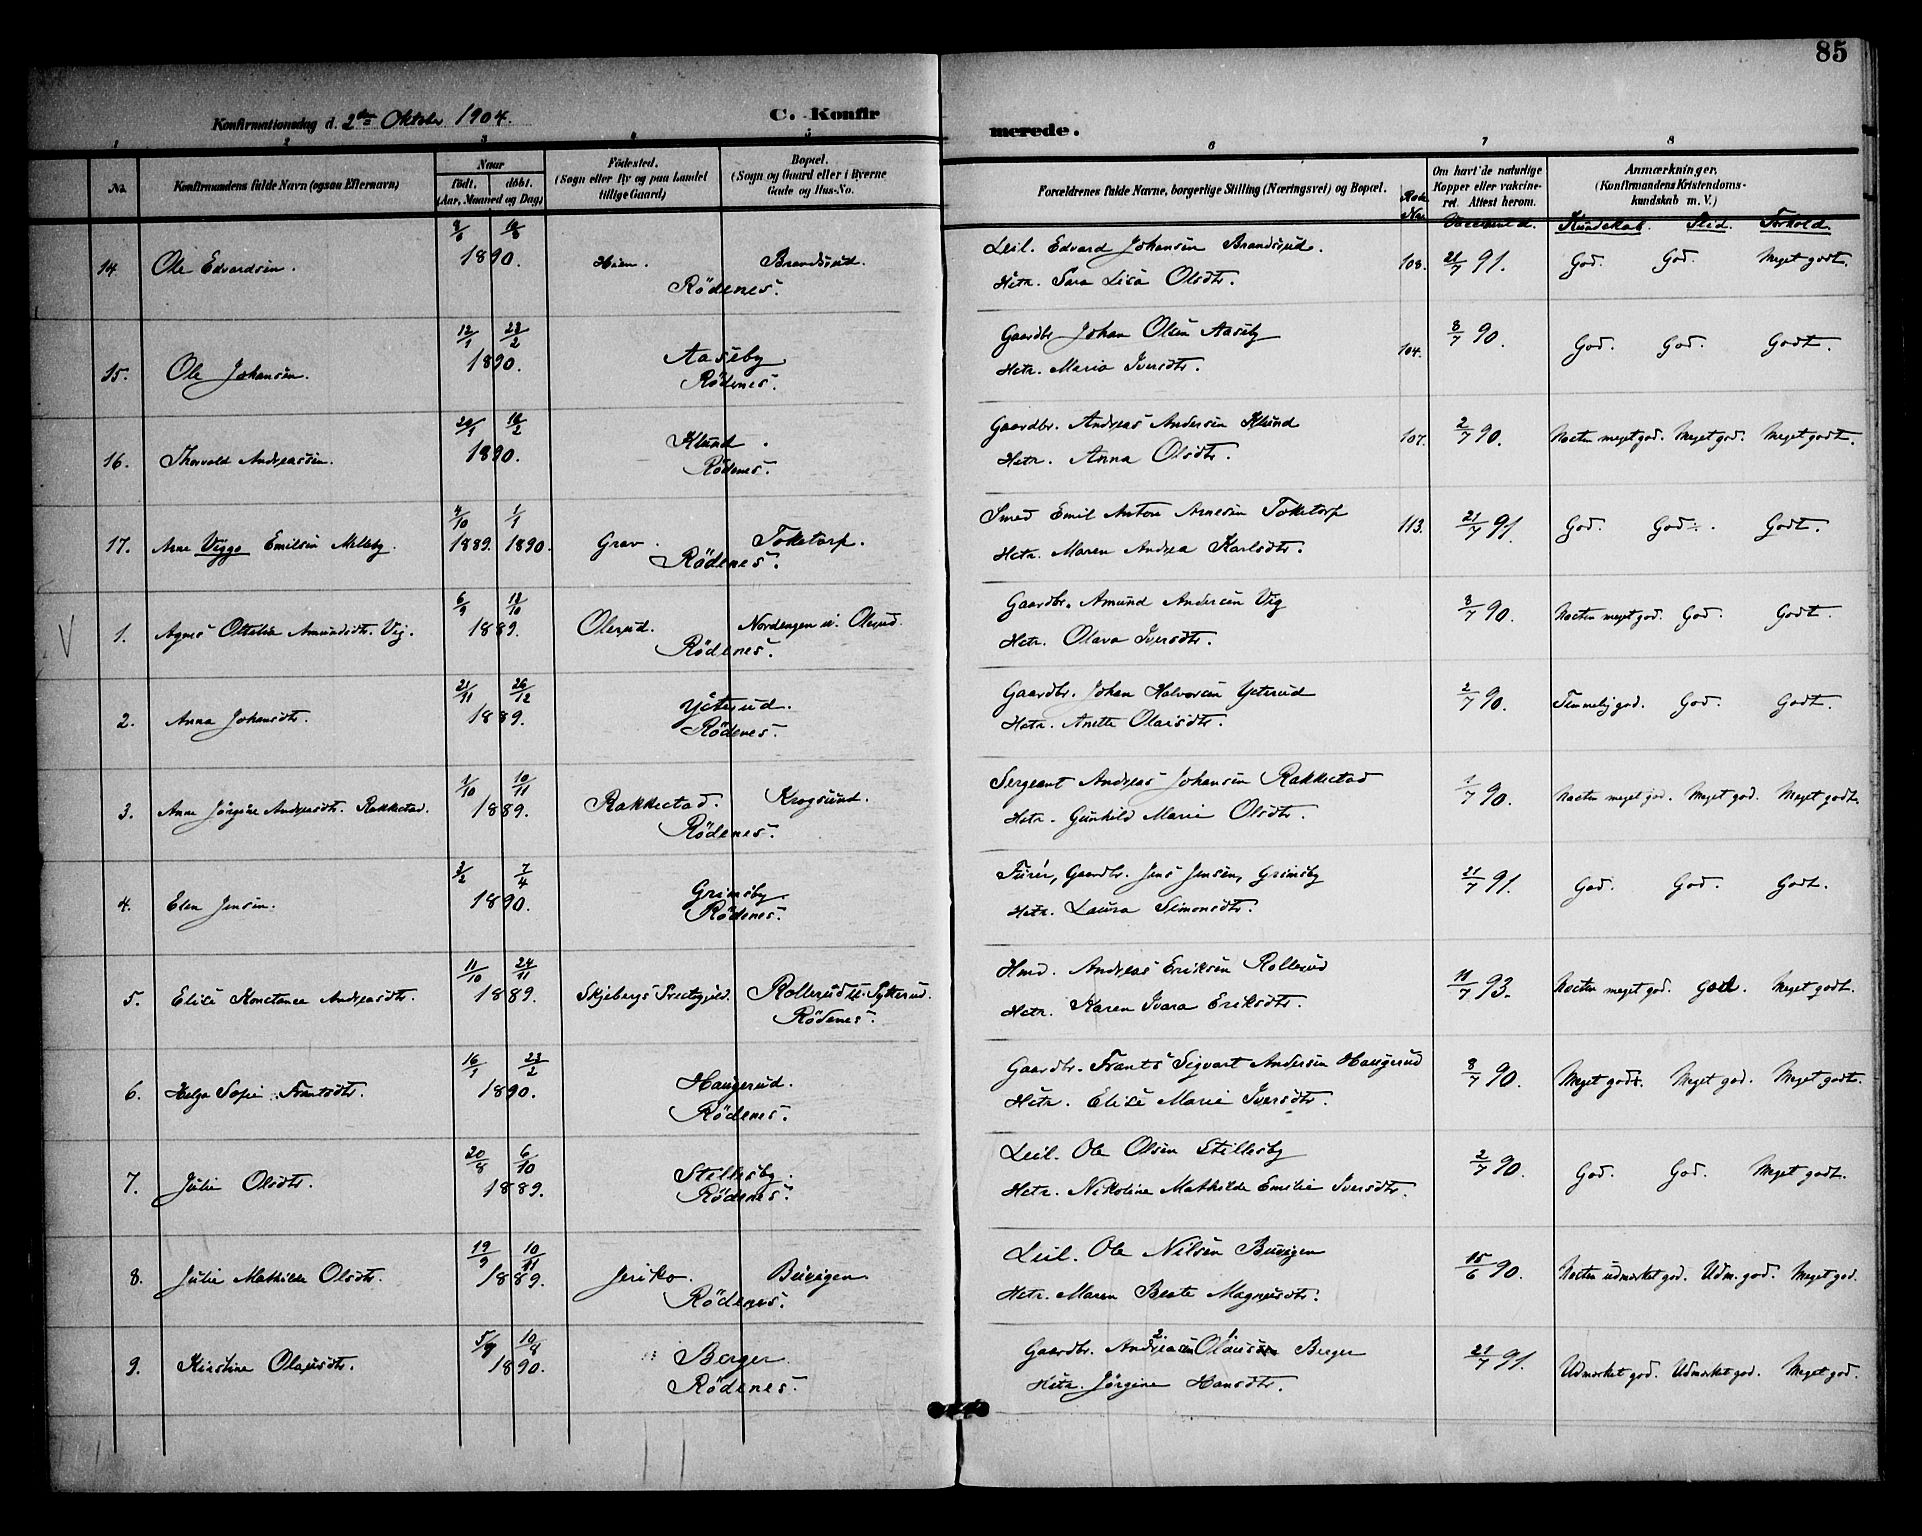 85
Konfirmationsdag d. 2den Oktober 1904.
C. Konfirmerede.
1 2 3 4 5 6 7 8
No. Konfirmandens fulde Navn (ogsaa Efternavn) Naar født, døbt. (Aar, Maaned og Dag) Fødested. (Sogn eller By og paa Landet tillige Gaard) Bopæl. (Sogn og Gaard eller i Byerne Gade og Hus-No. Forældrenes fulde Navne, borgerlige Stilling (Næringsvei) og Bopæl. Om havt de naturlige Kopper eller vakcineret. Attest herom. Anmærkninger. (Konfirmandens Kristendomskundskab m. V.)
Kundskab. Flid. Forhold.
14. Ole Edvardsen. 1890. Hien. Brandsrud. Rödenes.
Leil. Edvard Johansen Brandsrud. 108. 21/7 91. God. God. Meget godt.
Hstr. Sara Lisa Olsdtr.
15. Ole Johansen. 12/1 23/2 1890. Aaseby Rödenes.
Gaardbr. Johan Olsen Aaseby 104. 8/7 90. God. God. Godt.
Hstr. Maria Iversdtr.
16. Thorvald Andreassen. 20/1 16/2 1890. Klund. Rödenes.
Gaardbr. Andreas Andersen Klund 107. 2/7 90. Næsten meget god. Meget god. Meget godt.
Hstr. Anna Olsdtr.
17. Arne Viggo Emilsen Melleby. 4/10 1889. 1/1 1890. Grav. Toketorp. Rödenes.
Smed Emil Anton Arnesen Toketorp 113. 21/7 91. God. God. Godt.
Hstr. Maren Andrea Karlsdtr.
V 1. Agnes Ottilia Amundsdtr. Vig. 6/9 13/10 1889. Olerud. Nordengen u. Olerud. Rödenes.
Gaardbr. Amund Andersen Vig 8/7 90. Næsten meget god. God. Godt.
Hstr. Olava Iversdtr.
2. Anna Johansdtr. 21/11 26/12 1889. Ysterud. Rödenes.
Gaardbr. Johan Halvorsen Ysterud 2/7 90. Temmelig god. God. Godt.
Hstr. Anette Olaisdtr.
3. Anne Jørgine Andreasdtr. Rakkestad. 1/10 10/11 1889. Rakkestad. Krogsund. Rödenes.
Sergeant Andreas Johansen Rakkestad 1/7 90. Næsten meget god. Meget god. Meget godt.
Hstr. Gunhild Marie Olsdtr.
4. Elen Jensen. 2/2 7/4 1890. Grimsby Rödenes.
Furér, Gaardbr. Jens Jensen, Grimsby 21/7 91. God. God. Godt.
Hstr. Laura Simonsdtr.
5. Elise Konstance Andreasdtr. 11/10 24/11 1889. Skjebergs Prestegjeld. Rollerud Rödenes.
Hmd. Andreas Eriksen Rollerud 11/7 93. Næsten meget god. God. Meget godt.
Hstr. Karen Ivara Eriksdtr.
6. Helga Sofie Frantsdtr. 16/1 23/2 1890. Haugerud. Rödenes.
Gaardbr. Frants Sigvart Andersen Haugerud 8/7 90. Meget godt. Meget god. Meget godt.
Hstr. Elise Marie Iversdtr.
7. Julie Olsdtr. 20/8 6/10 1889. Stillesby. Rödenes.
Leil. Ole Olsen Stillesby 2/7 90. God. God. Meget godt.
Hstr. Nikoline Mathilde Emilie Iversdtr.
8. Julie Mathilde Olsdtr. 19/9 10/11 1889. Jeriko. Buvigen Rödenes.
Leil. Ole Nilsen Buvigen 15/6 90. Næsten udmærket god. Udm. god. Meget god.
Hstr. Maren Beate Magnusdtr.
9. Kirstine Olausdtr. 10/8 1890. Berger Rödenes.
Gaardbr. Andreasen Olaus Berger 21/7 91. Udmærket god. Udmærket god. Meget god.
Hstr. Jørgine Hansdtr.